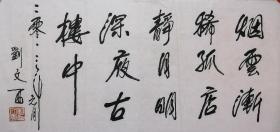 烟云漸
稀孤店
靜月明
深夜古
樓中
二零一二年元月
劉文西